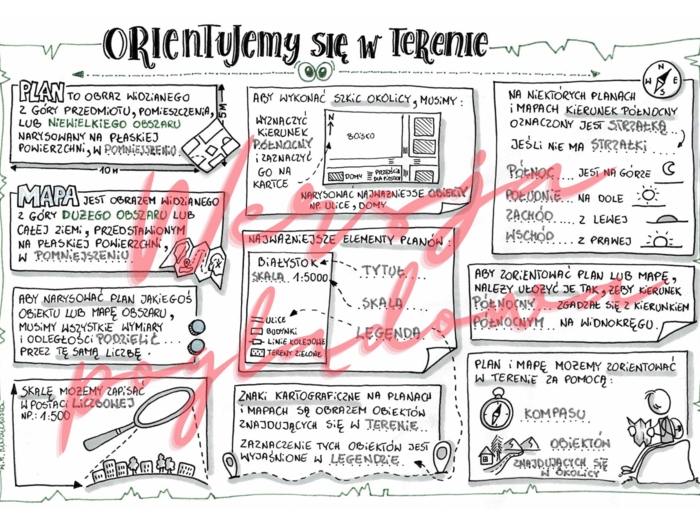 ORIENTUJEMY SIĘ W TERENIE
PLAN TO OBRAZ WIDZIANEGO
Z GÓRY PRZEDMIOTU, POMIESZCZENIA,
LUB NIEWIELKIEGO OBSZARU
NARYSOWANY NA PŁASKIEJ
POWIERZCHNI, W POMNIEJSZENIU...
5 M
10 M
MAPA JEST OBRAZEM WIDZIANEGO
Z GÓRY DUŻEGO OBSZARU LUB
CAŁEJ ZIEMI, PRZEDSTAWIONYM
NA PŁASKIEJ POWIERZCHNI,
W POMNIEJSZENIU...
ABY NARYSOWAĆ PLAN JAKIEGOŚ
OBIEKTU LUB MAPĘ OBSZARU,
MUSIMY WSZYSTKIE WYMIARY
I ODLEGŁOŚCI PODZIELIĆ....
PRZEZ TĘ SAMĄ LICZBĘ.
SKALĘ MOŻEMY ZAPISAĆ
W POSTACI LICZBOWEJ
NP.: 1:500
ABY WYKONAĆ SZKIC OKOLICY, MUSIMY:
WYZNACZYĆ
KIERUNEK
PÓŁNOCNY
I ZAZNACZYĆ
GO NA
KARTCE
N
BOISKO
DOMY
PRZEJŚCIA
DLA PIESZYCH
NARYSOWAĆ NAJWAŻNIEJSZE OBIEKTY
NP. ULICE, DOMY.
NAJWAŻNIEJSZE ELEMENTY PLANÓW:
BIAŁYSTOK
SKALA 1:5000
TYTUŁ
SKALA
LEGENDA
ULICE
BUDYNKI
LINIE KOLEJOWE
TERENY ZIELONE
ZNAKI KARTOGRAFICZNE NA PLANACH
I MAPACH SĄ OBRAZEM OBIEKTÓW
ZNAJDUJĄCYCH SIĘ W TERENIE...
ZAZNACZENIE TYCH OBIEKTÓW JEST
WYJAŚNIONE W LEGENDZIE...
N
E
S
W
NA NIEKTÓRYCH PLANACH
I MAPACH KIERUNEK PÓŁNOCNY
OZNACZONY JEST STRZAŁKĄ..
JEŚLI NIE MA STRZAŁKI....
PÓŁNOC... JEST NA GÓRZE
POŁUDNIE.. NA DOLE
ZACHÓD.... Z LEWEJ
WSCHÓD.... Z PRAWEJ
ABY ZORIENTOWAĆ PLAN LUB MAPĘ,
NALEŻY UŁOŻYĆ JE TAK, ŻEBY KIERUNEK
PÓŁNOCNY.... ZGADZAŁ SIĘ Z KIERUNKIEM
PÓŁNOCNYM... NA WIDNOKRĘGU.
PLAN I MAPĘ MOŻEMY ZORIENTOWAĆ
W TERENIE ZA POMOCĄ:
KOMPASU
OBIEKTÓW
ZNAJDUJĄCYCH SIĘ
W OKOLICY
Wersja
poglądowa